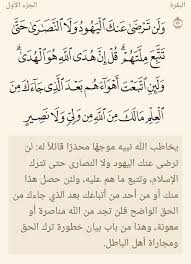 البقرة
الجزء الأول
وَلَن تَرْضَىٰ عَنكَ ٱلْيَهُودُ وَلَا ٱلنَّصَٰرَىٰ حَتَّىٰ
تَتَّبِعَ مِلَّتَهُمْ ۗ قُلْ إِنَّ هُدَى ٱللَّهِ هُوَ ٱلْهُدَىٰ ۗ
وَلَئِنِ ٱتَّبَعْتَ أَهْوَآءَهُم بَعْدَ ٱلَّذِى جَآءَكَ مِنَ
ٱلْعِلْمِ ۙ مَا لَكَ مِنَ ٱللَّهِ مِن وَلِىٍّ وَلَا نَصِيرٍ
يخاطب الله نبيه موجهًا محذرًا قائلًا له: لن
ترضى عنك اليهود ولا النصارى حتى تترك
الإسلام، وتتبع ما هم عليه، ولئن حصل هذا
منك أو من أحد من أتباعك بعد الذي جاءك من
الحق الواضح فلن تجد من الله مناصرة أو
معونة، وهذا من باب بيان خطورة ترك الحق
ومجاراة أهل الباطل.